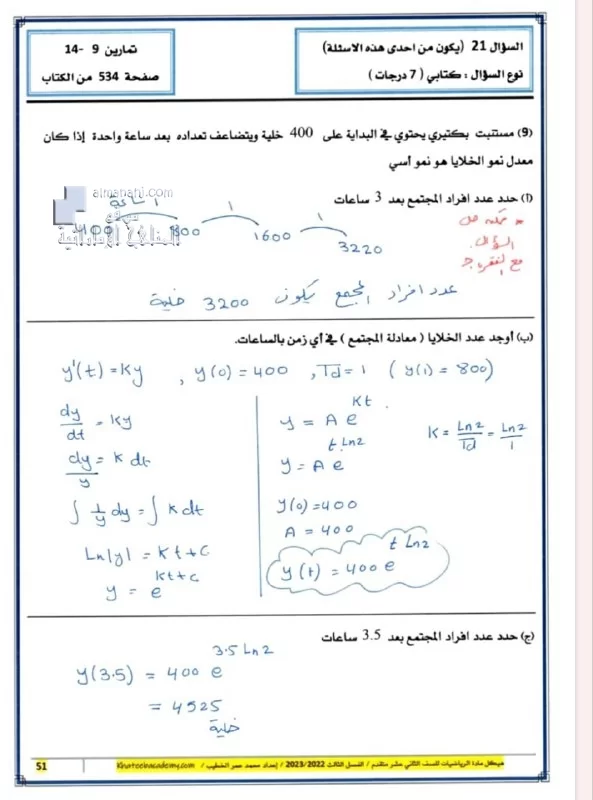 السؤال 21 (يكون من احدى هذه الاسئلة)
نوع السؤال : كتابي ( 7 درجات )
تمارين 9 -14
صفحة 534 من الكتاب
(9) مستنبت بكتيري يحتوي في البداية على 400 خلية ويتضاعف تعداده بعد ساعة واحدة إذا كان
معدل نمو الخلايا هو نمو أسي
(أ) حدد عدد افراد المجتمع بعد 3 ساعات
almanahj.com
موقع
المناهج الإماراتية
1 ساعة 1 1
400 800 1600 3220
* ممكن حل
السؤال
مع الفقرة ج
عدد افراد المجتمع يكون 3200 خلية
(ب) أوجد عدد الخلايا ( معادلة المجتمع ) في أي زمن بالساعات.
y'(t) = Ky , y(0) = 400 , Td = 1 ( y(1) = 800)
dy/dt = Ky
dy/y = K dt
∫ 1/y dy = ∫ K dt
Ln|y| = Kt + C
y = e^(Kt+c)
y = A e^(Kt)
K = Ln2/Td = Ln2/1
y = A e^(t Ln2)
y(0) = 400
A = 400
y(t) = 400 e^(t Ln2)
(ج) حدد عدد افراد المجتمع بعد 3.5 ساعات
y(3.5) = 400 e^(3.5 Ln2)
= 4525
خلية
هيكل مادة الرياضيات للصف الثاني عشر متقدم / الفصل الثالث 2023/2022 / إعداد محمد عمر الخطيب / Khateebacademy.com
51